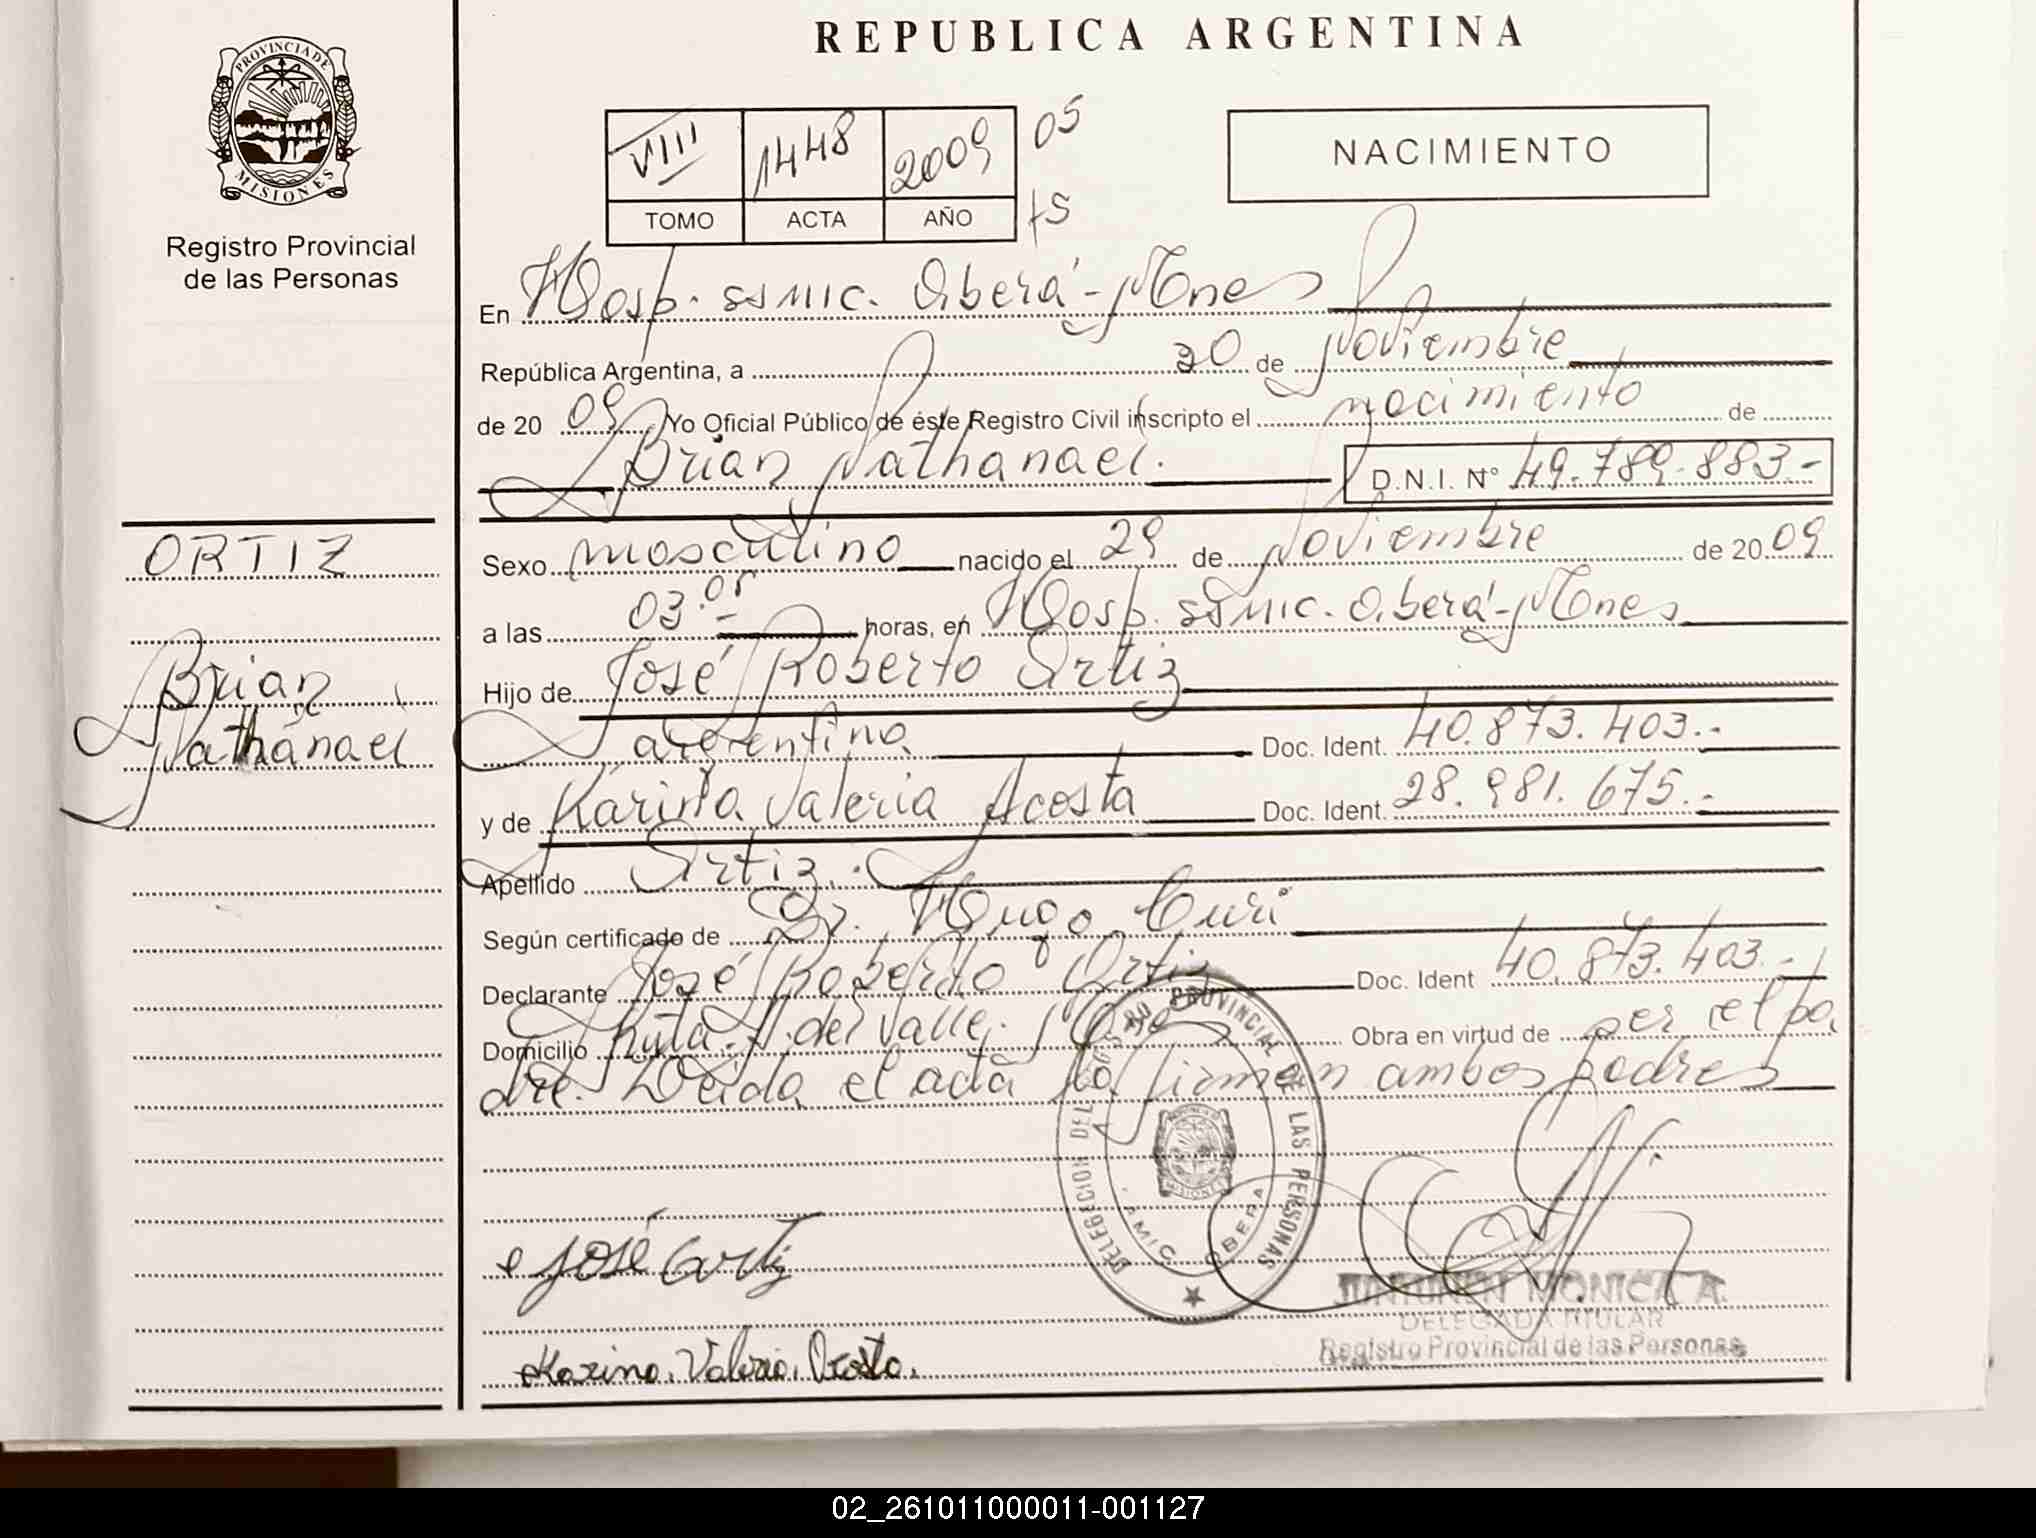 REPUBLICA ARGENTINA
PROVINCIA DE
MISIONES
Registro Provincial
de las Personas
VIII 1448 2009 05
TOMO ACTA AÑO
NACIMIENTO
En Hosp. SSMIC. Oberá-Mnes
República Argentina, a 30 de Noviembre
de 2009 Yo Oficial Público de éste Registro Civil inscripto el nacimiento de
Brian Nathanael. D.N.I. Nº 49.789.883.-
ORTIZ
Brian
Nathanael
Sexo masculino nacido el 29 de Noviembre de 2009
a las 03.05 horas, en Hosp. SSMIC. Oberá-Mnes
Hijo de José Roberto Ortiz
argentino Doc. Ident. 40.873.403.-
y de Karina Valeria Acosta Doc. Ident. 28.981.675.-
Apellido Ortiz.
Según certificado de Dr. Hugo Curi
Declarante José Roberto Ortiz Doc. Ident 40.873.403.-
Domicilio Ruta. A. del Valle. Obra en virtud de ser el pa
dre. Leida el acta la firman ambos padres
DELEGACION DEL REGISTRO PROVINCIAL DE LAS PERSONAS
MISIONES
SAMIC OBERA
José Ortiz
JUNTUNEN MONICA A.
DELEGADA TITULAR
Registro Provincial de las Personas
Karina. Valeria. Acosta.
02_261011000011-001127